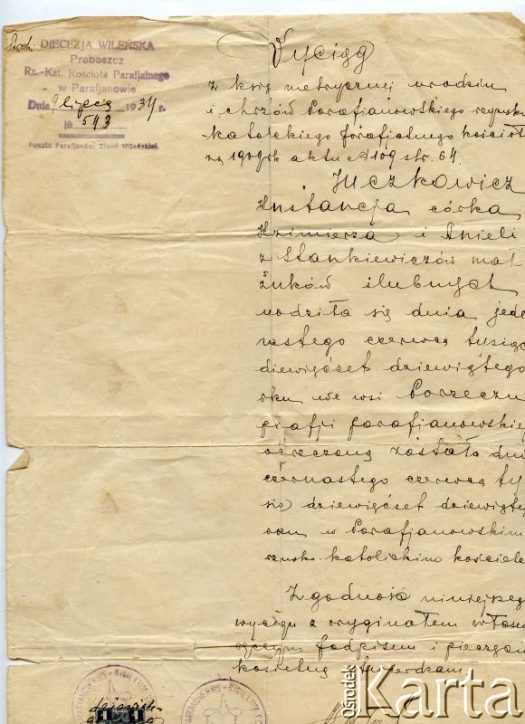 DIECEZJA WILEŃSKA
Proboszcz
Rz.-Kat. Kościoła Parafjalnego
w Parafjanowie
Dnia 9 lipca 1934 r.
№ 593
Poczta Parafjanów, Ziemi Wileńskiej.
Wyciąg
z ksiąg metrycznej urodzin
i chrztów Parafianowskiego rzymsko
katolickiego parafjalnego kościoła
za 1909 rok aktu № 109 str. 64.
Juczkowicz
Konstancja córka
Kazimierza i Anieli
z Stankiewiczów mał
żonków ślubnych
urodziła się dnia jede
nastego czerwca tysiąc
dziewięćset dziewiątego
roku we wsi Porzecza
parafji parafjanowskiej
ochrzczoną została dnia
czternastego czerwca ty
siąc dziewięćset dziewiątego
roku w Parafjanowskim
rzymsko katolickim kościele
Zgodność niniejszego
wyciągu z oryginałem własno
ręcznym podpisem i pieczęcią
kościelną stwierdzam
Ośrodek
Karta